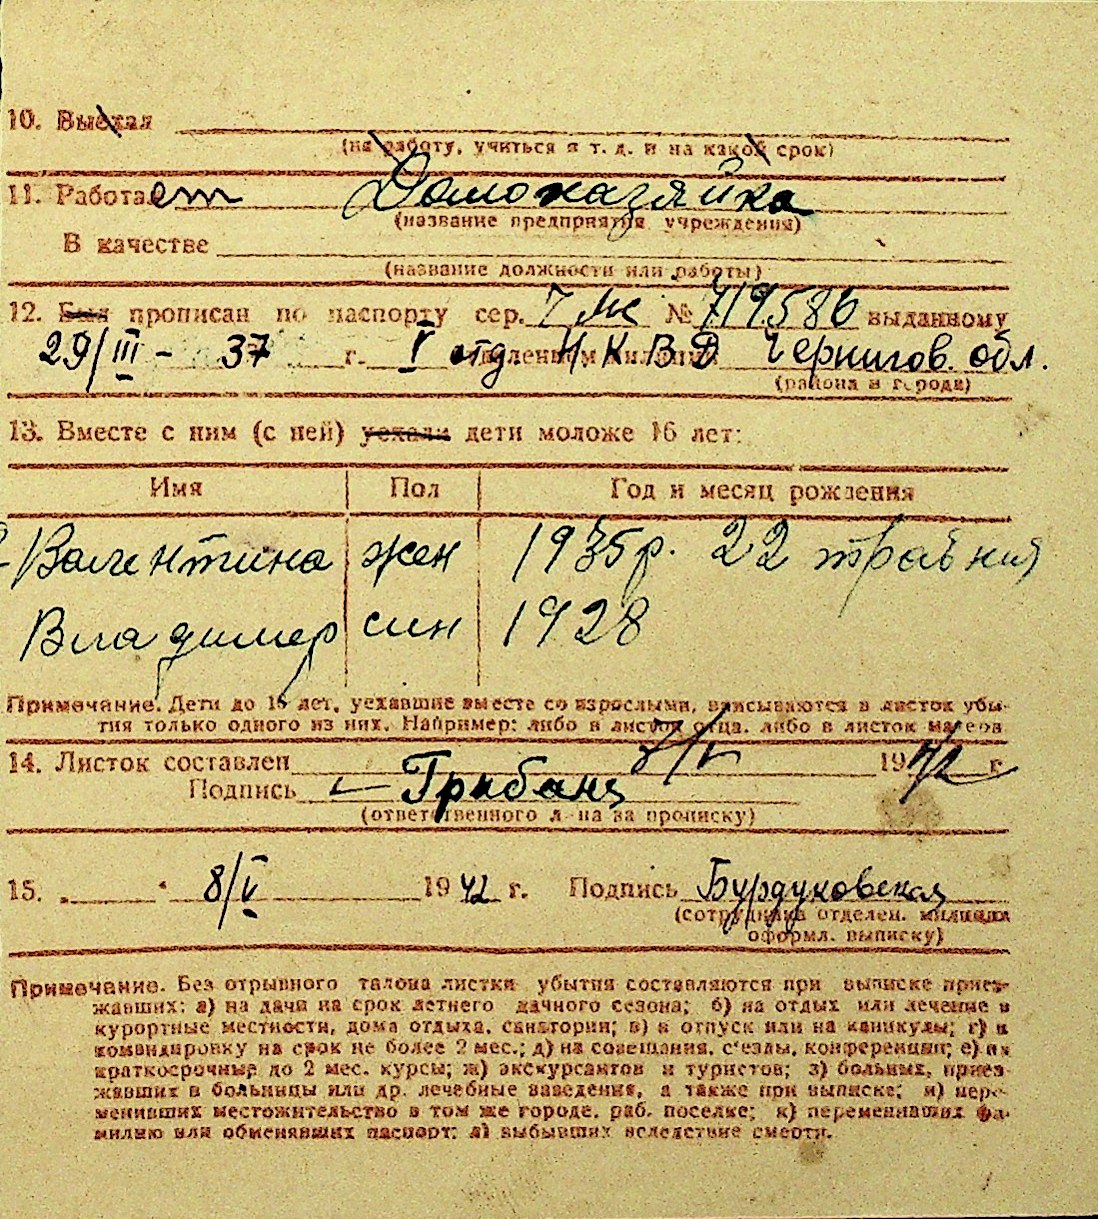 10. Выехал
(на работу, учиться и т. д. и на какой срок)
11. Работает Домохазяйка
(название предприятия, учреждения)
В качестве
(название должности или работы)
12. Был прописан по паспорту сер. № 719586 выданному
29/III - 37 г. I отд Н.К.В.Д Чернигов. обл.
(района и города)
13. Вместе с ним (с ней) уехали дети моложе 16 лет:
Имя Пол Год и месяц рождения
Валентина жен 1935р. 22 травня
Владимер син 1928
Примечание. Дети до 16 лет, уехавшие вместе со взрослыми, вписываются в листок убы-
тия только одного из них. Например: либо в листок отца, либо в листок матери
14. Листок составлен 8/V 1942 г.
Подпись Грибанц
(ответственного л-ца за прописку)
15. 8/V 1942 г. Подпись Бурдуковская
(сотрудника отделен. милиции
оформл. выписку)
Примечание. Без отрывного талона листки убытия составляются при выписке приез-
жавших: а) на дачи на срок летнего дачного сезона; б) на отдых или лечение в
курортные местности, дома отдыха, санатории; в) в отпуск или на каникулы; г) в
командировку на срок не более 2 мес.; д) на совещания, с'езды, конференции; е) на
краткосрочные до 2 мес. курсы; ж) экскурсантов и туристов; з) больных, приез-
жавших в больницы или др. лечебные заведения, а также при выписке; и) пере-
менивших местожительство в том же городе, раб. поселке; к) переменивших фа-
милию или обменявших паспорт; л) выбывших вследствие смерти.